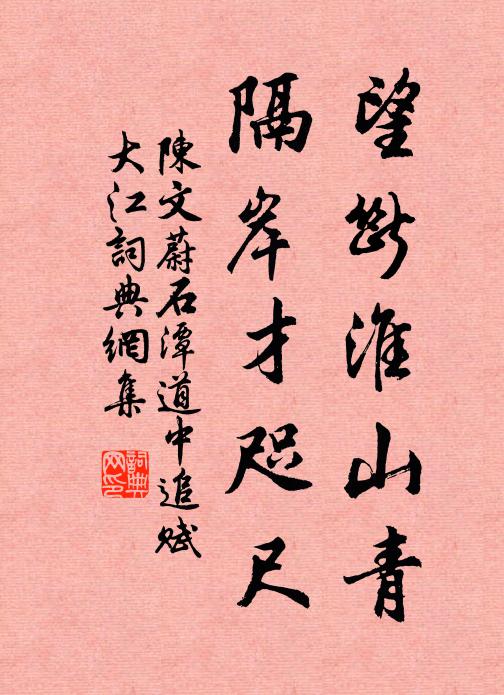 望斷淮山青
隔岸才咫尺
陳文蔚石潭道中追賦
大江詞典網集
詞典网印